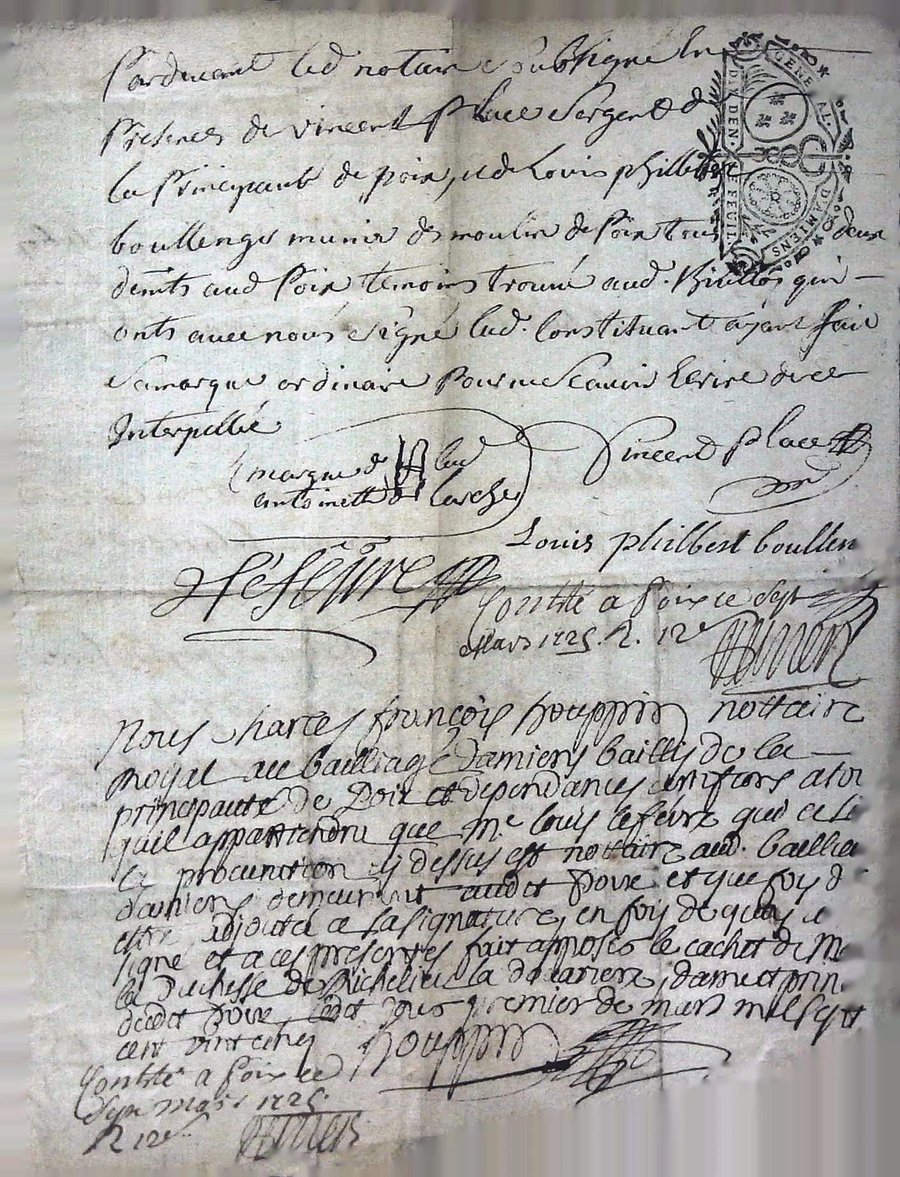 Pardevant led notaire soubsigné En
presence de vincent Place sergent de
la Principauté de poix, et de Louis philbert
boullenger munier du moulin de Poix tous deux
demts aud Poix temoins trouvé aud. qui
onts avec nous signé lad. Constituant ayant fait
sa marque ordinaire Pour ne scavoir Ecrire de ce
Interpellée
GENERAL. D'AMIENS
DIX DEN. LE FEUIL
marque de lad
antoinette Larcher
Vincent Place
Louis philbert boullen
Lefevre
Contlé a Poix ce Sept
Mars 1725. R. 12s
Nous charles françois houppin nottaire
royal au bailliage damiens bailli de la
principauté de Poix et dependances certifions a tou
quil appartiendra que Me louis lefevre qui a
la procuration cy dessus est nottaire aud. baillia
damiens demeurant audit Poix et que foy d
estre adjoutée a sa signature, en foy de quoy
signé et a ces presentes fait apposer le cachet de M
la Duchesse de Richelieu la douariere, dame et prin
dudit Poix, cedit jour premier de mars mil sept
cent vint cinq houppin
Contlé a Poix ce
Sept Mars 1725
R 12s